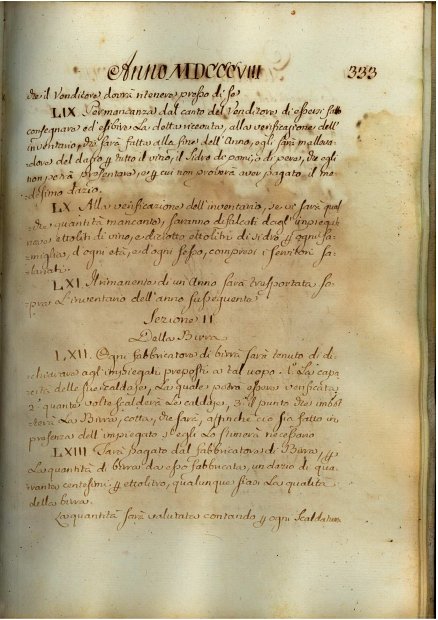 Anno MDCCCVIII 333
che il Venditore dovrà ritenere presso di se
LIX Per mancanza dal canto del Venditore di essersi fatto
consegnare ed esibire la detta ricevuta, alla verificazione dell'
inventario, che sarà fatta alla fine dell'Anno, egli sarà malleva
dore del dazio p tutto il vino, il sidro di pomi, o di pere, che egli
non potrà presentare, e p cui non proverà aver pagato il me
desimo dazio.
LX Alla verificazione dell'inventario, se vi sarà qual
che quantità mancante, saranno defalcati dagl'impiegati
nove ettolitri di vino, e diciotto ettolitri di sidro p ogni fa
miglia, d'ogni età, e d'ogni sesso, compresi i servitori sa
lariati.
LXI Il rimanente di un Anno sarà trasportata so
pra l'inventario dell'anno susseguente
Sezione II
Della Birra
LXII. Ogni fabbricatore di birra sarà tenuto di di
chiarare agli impiegati preposti a tal uopo. 1.° La capa
cità delle sue caldaje, la quale potrà essere verificata
2.° quante volte scalderà le caldaje, 3.° il punto che imbot
terà la Birra, cotta, che sarà, affinchè ciò sia fatto in
presenza dell'impiegato s'egli lo stimerà necessario
LXIII Sarà pagato dal fabbricatore di Birra, p
la quantità di birra da esso fabbricata, un dazio di qua
ranta centesimi p ettolitro, qualunque sia la qualità
della birra.
La quantità sarà valutata contando p ogni scaldatura